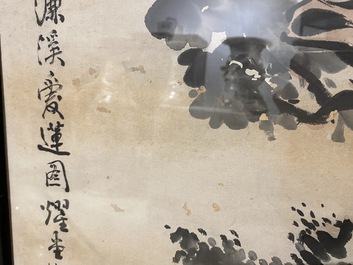 濂溪愛蓮圖耀